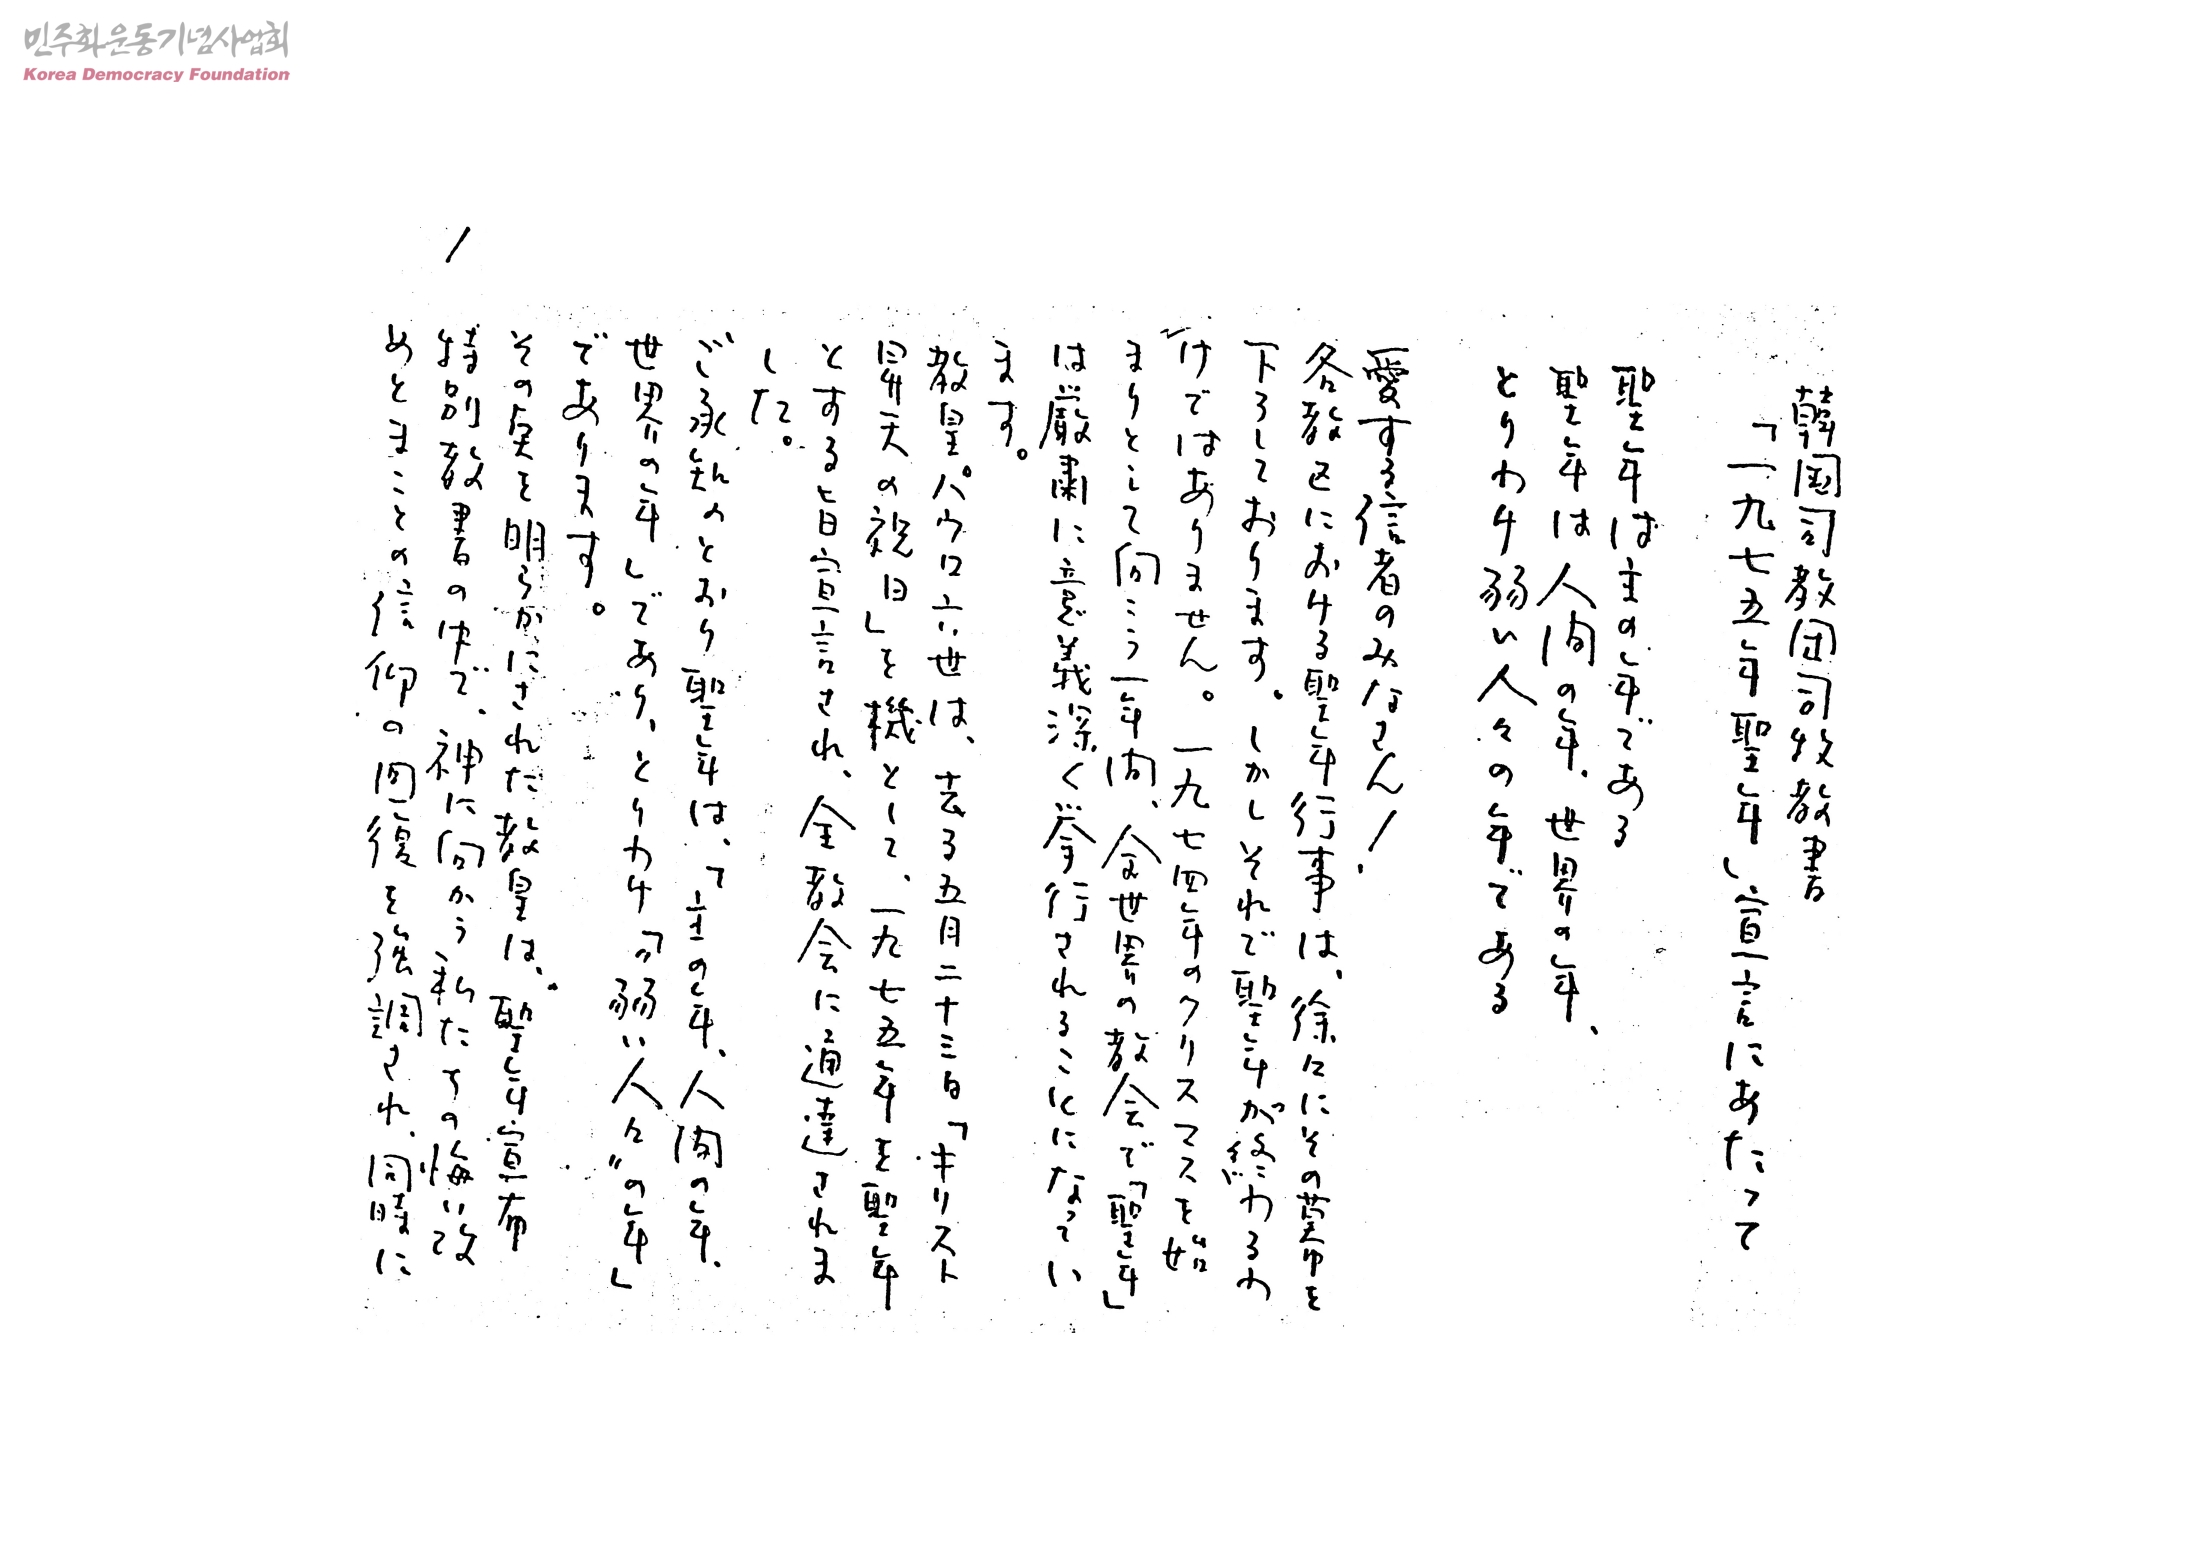 민주화운동기념사업회
Korea Democracy Foundation
韓国司教団司牧教書
「一九七五年聖年」宣言にあたって
聖年は主の年である
聖年は人間の年、世界の年、
とりわけ弱い人々の年である
愛する信者のみなさん!
各教区における聖年行事は、徐々にその幕を
下ろしております。しかしそれで聖年が終わるわ
けではありません。一九七四年のクリスマスを始
まりとして向こう一年間、全世界の教会で「聖年」
は厳粛に意義深く挙行されることになってい
ます。
教皇パウロ六世は、去る五月二十三日「キリスト
昇天の祝日」を機として、一九七五年を聖年
とする旨宣言され、全教会に通達されま
した。
ご承知のとおり聖年は、「主の年、人間の年、
世界の年」であり、とりわけ「〝弱い人々〟の年」
であります。
その点を明らかにされた教皇は、聖年宣布
特別教書の中で、神に向かう私たちの悔い改
めとまことの信仰の回復を強調され、同時に
1